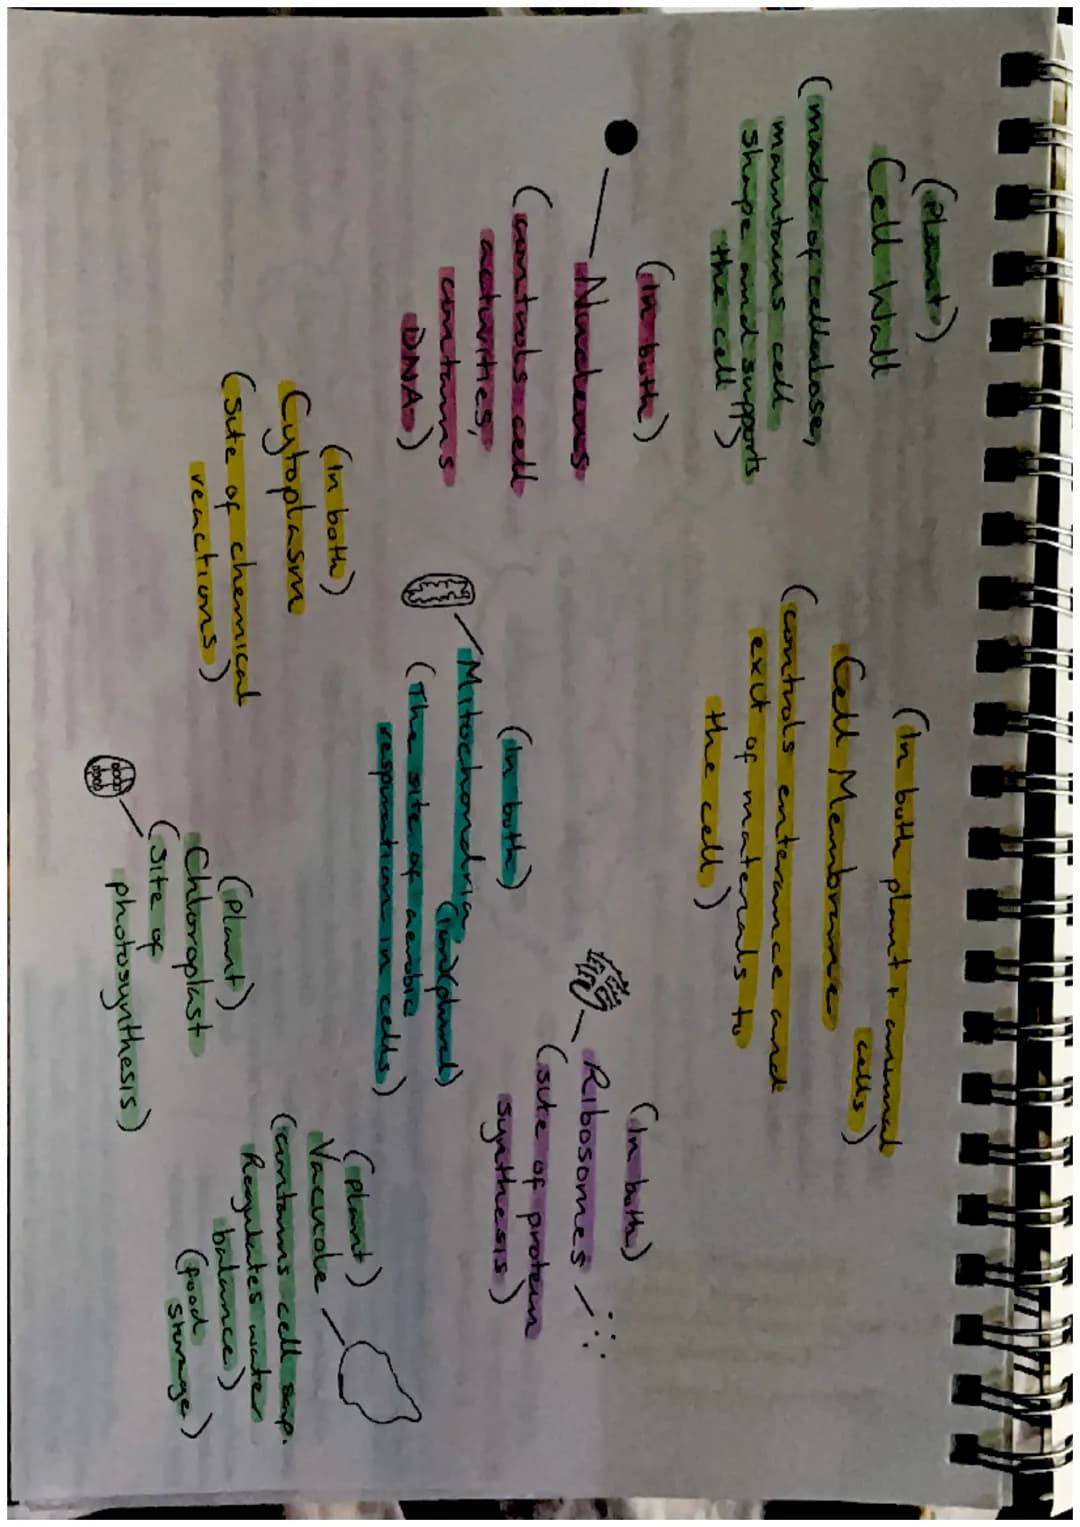 (Plant)
Cell Wall
(made of cellulose,
maintains cell
shape and supports
the cell)
(In both plant + animal
cells)
Cell Membrane
(controls enterance and
exit of materials to
the cell)
(In both)
Nucleus
(controls cell
activities,
contains
DNA)
(In both)
Mitochondria
(The site of aerobic
respiration in cells)
(In both)
Ribosomes
(site of protein
synthesis)
(In both)
Cytoplasm
(Site of chemical
reactions)
(Plant)
Chloroplast
(Site of
photosynthesis)
(plant)
Vacuole
(contains cell sap.
Regulates water
balance)
(food
storage)